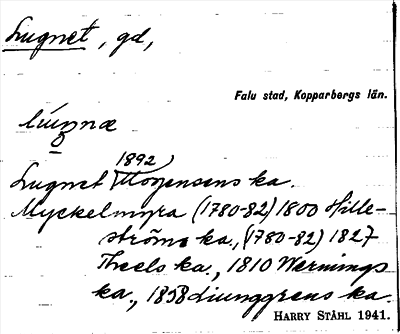 Lugnet, gd,
Falu stad, Kopparbergs län.
lúgnæ
1892
Lugnet Mogensens ka.
Myckelmyra (1780-82) 1800 Hille-
ströms ka., (1780-82) 1827
Theels ka., 1810 Wernings
ka., 1858 Ljunggrens ka.
HARRY STÅHL 1941.